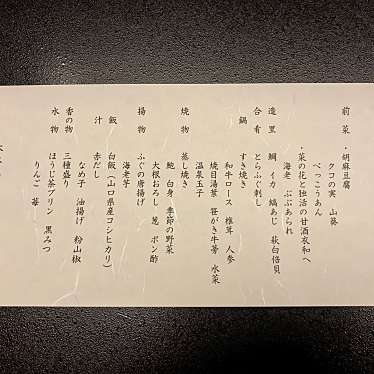 前菜 ・胡麻豆腐
タコの実 山葵
べっこうあん
・菜の花と独活の甘酒衣和へ
海老 ぶぶあられ
造里 鯛 イカ 縞あじ 萩白倍貝
合肴 とらふぐ刺し
鍋 すき焼き
和牛ロース 椎茸 人参
焼目湯葉 笹がき牛蒡 水菜
温泉玉子
焼物 蒸し焼き
鮑 白身 季節の野菜
大根おろし 葱 ポン酢
揚物 ふぐの唐揚げ
海老芋
飯 白飯(山口県産コシヒカリ)
汁 赤だし
なめ子 油揚げ 粉山椒
香の物 三種盛り
水物 ほうじ茶プリン 黒みつ
りんご 苺